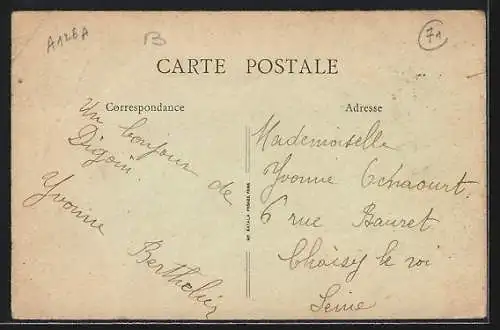 A126A
B
71
CARTE POSTALE
Correspondance
Adresse
Un bonjour de
Digoin
Yvonne Berthelier
Mademoiselle
Yvonne Ochaourt
6 rue Bauret
Choisy le roi
Seine